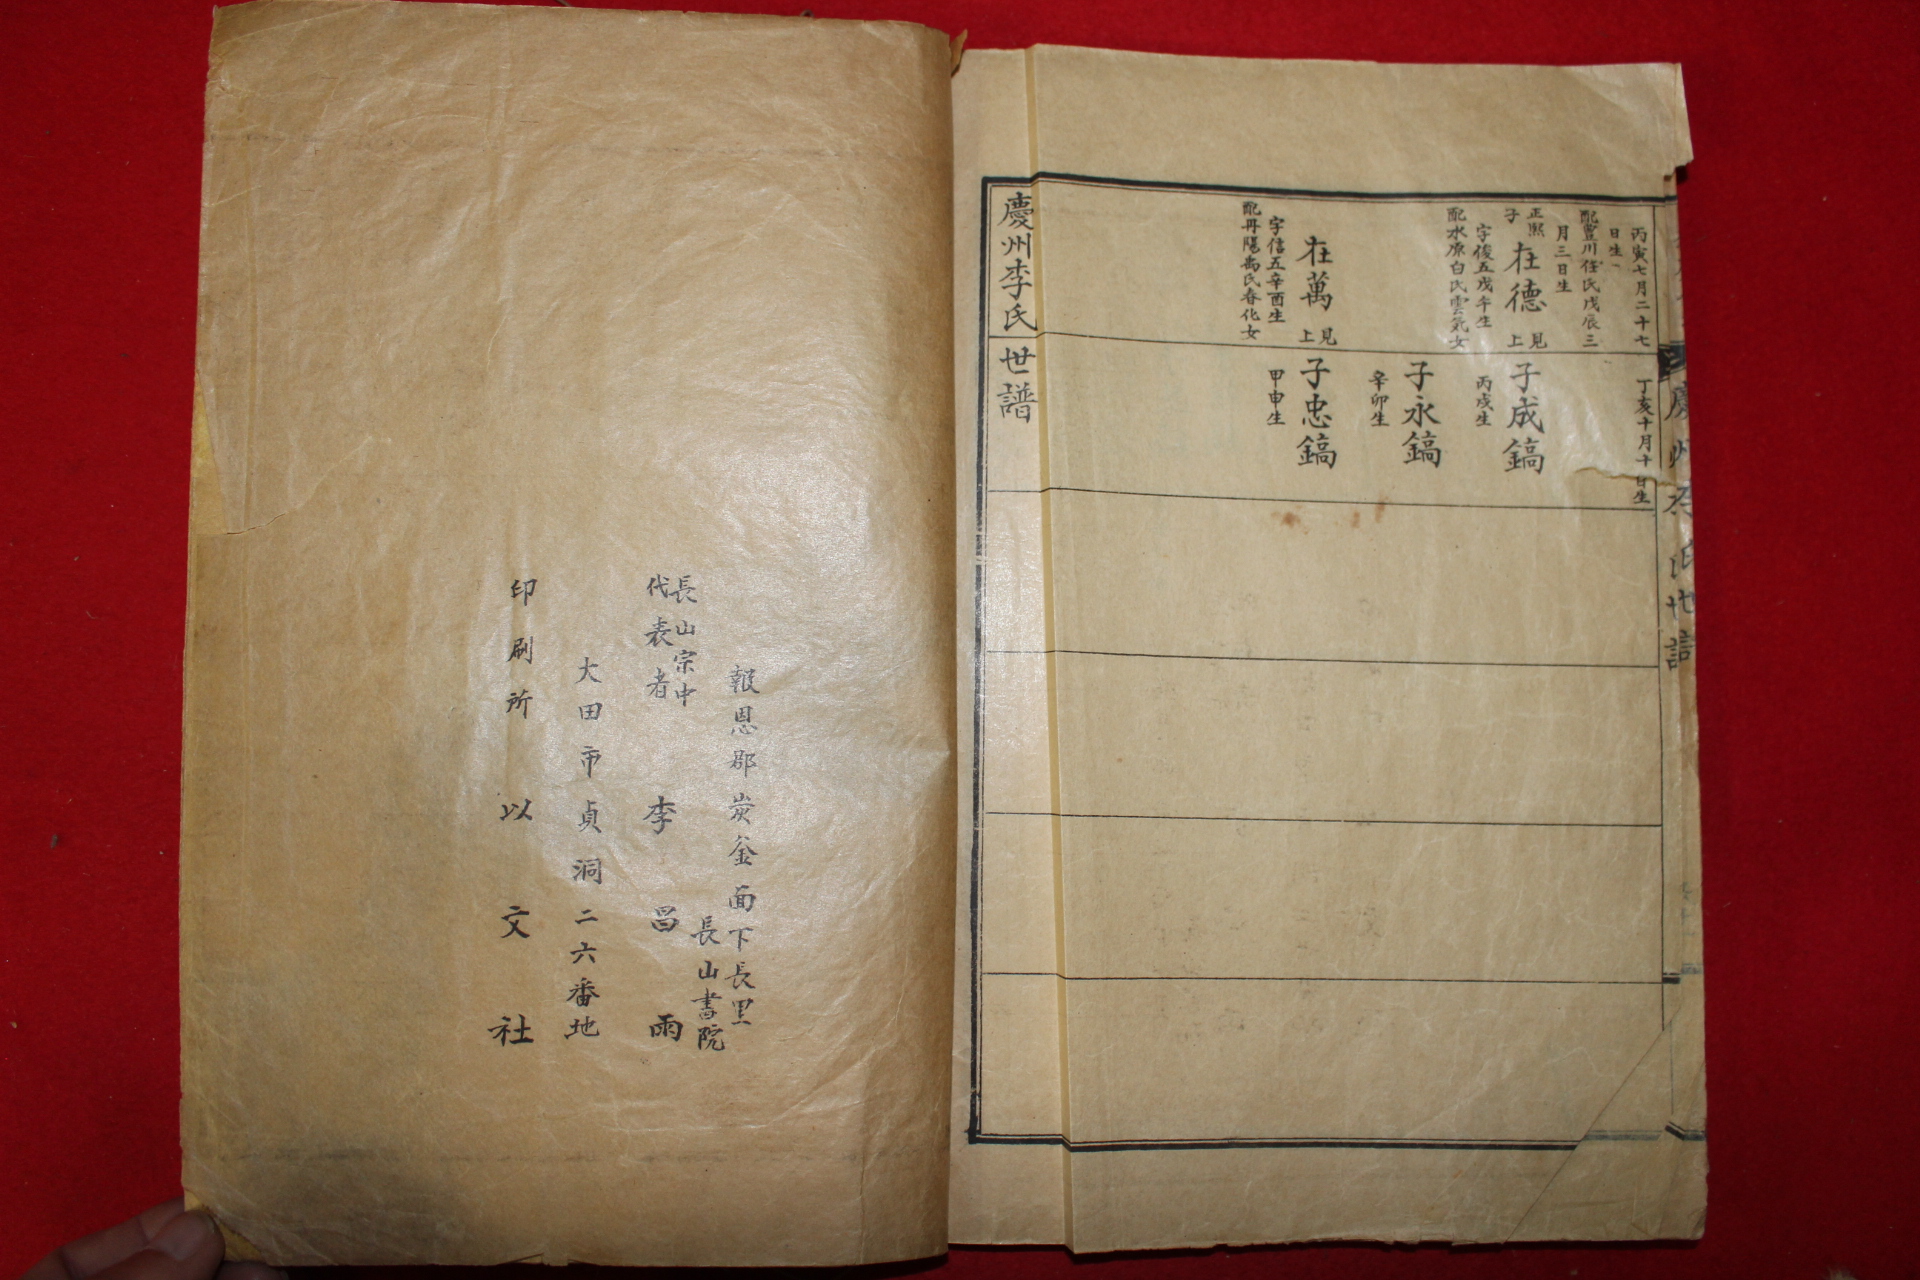 丙寅七月二十七
日生
配豊川任氏戊辰三
月三日生
正熙
子
在德
見
上
字俊五戊午生
配水原白氏雲気女
在萬
見
上
字信五辛酉生
配丹陽禹氏春化女
丁亥十月十日生
子成鎬
丙戌生
子永鎬
辛卯生
子忠鎬
甲申生
慶州李氏世譜
慶州李氏世譜
報恩郡炭釜面下長里
長山書院
長山宗中
代表者 李昌雨
大田市貞洞二六番地
印刷所 以文社